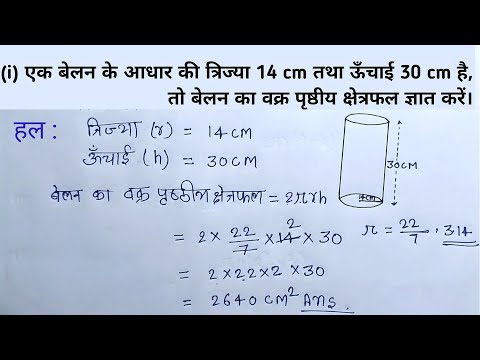 (i) एक बेलन के आधार की त्रिज्या 14 cm तथा ऊँचाई 30 cm है,
तो बेलन का वक्र पृष्ठीय क्षेत्रफल ज्ञात करें।
हल : त्रिज्या (r) = 14 CM
ऊँचाई (h) = 30 CM
30 CM
14CM
बेलन का वक्र पृष्ठीय क्षेत्रफल = 2πrh
= 2 × 22/7 × 14 2 × 30
π = 22/7 , 3.14
= 2 × 22 × 2 × 30
= 2640 CM² Ans.